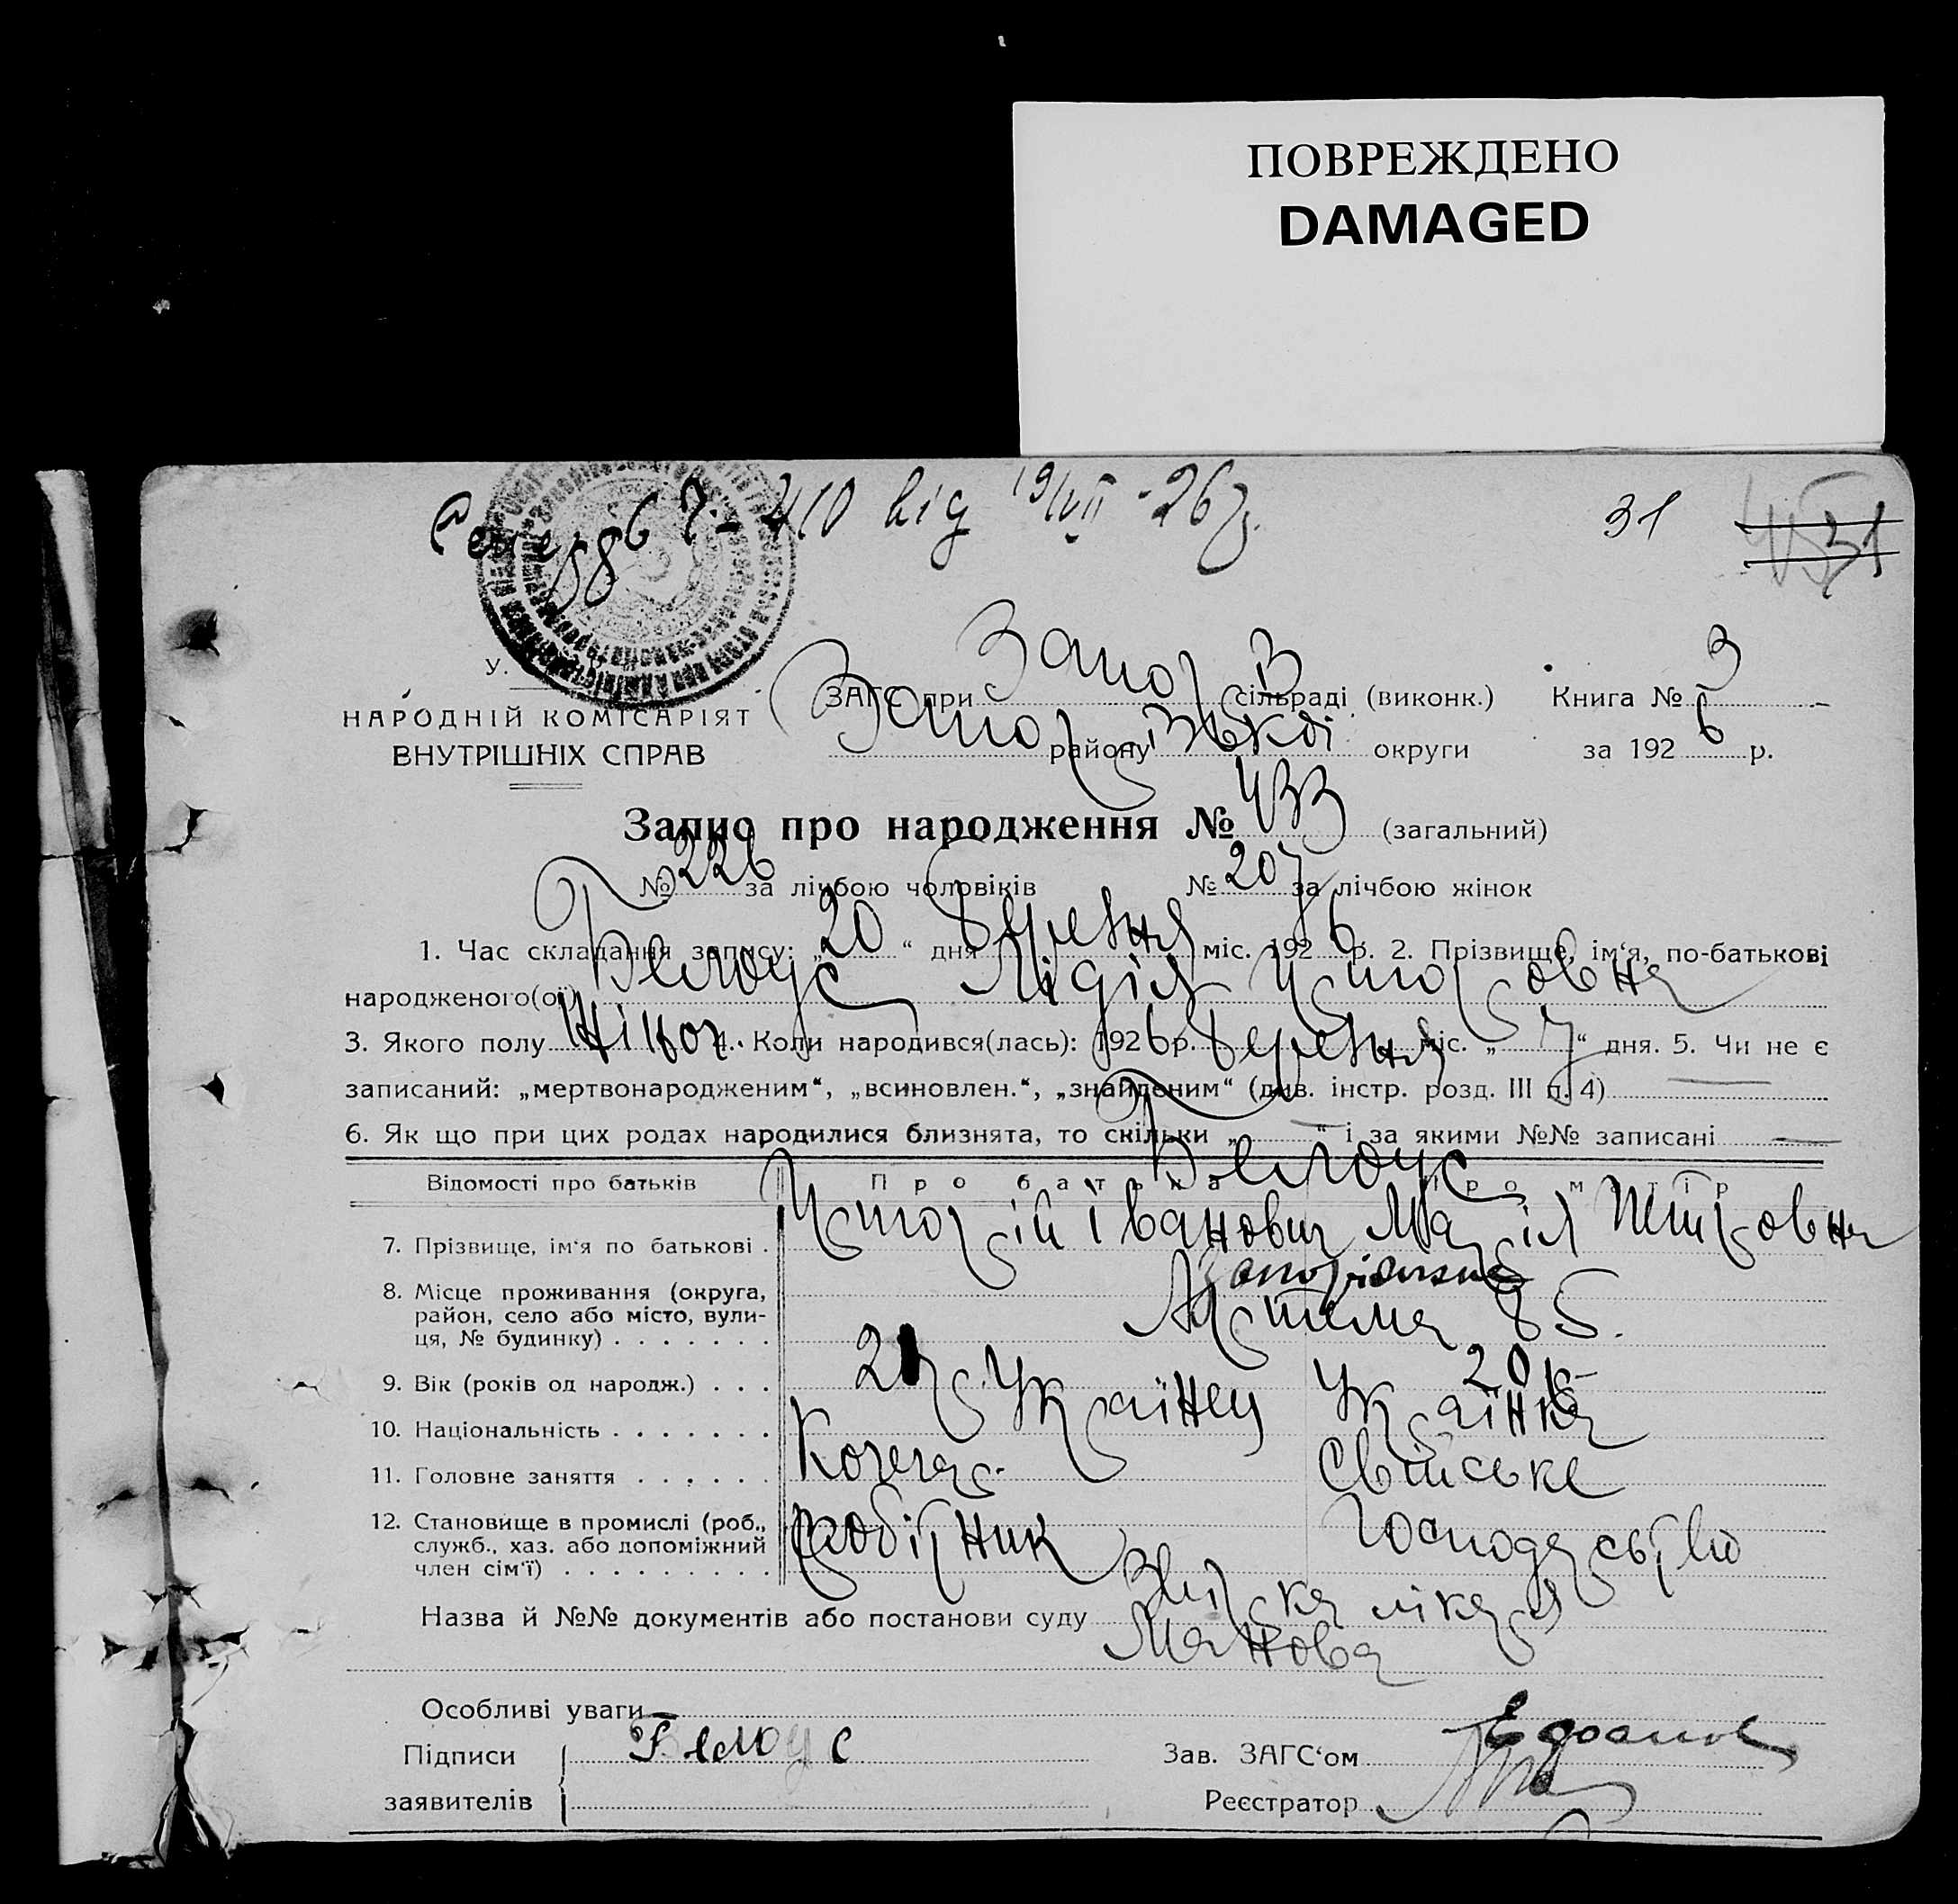 ПОВРЕЖДЕНО
DAMAGED
410 від 19/VII - 26 р.
31
У.
НАРОДНІЙ КОМІСАРІЯТ
ВНУТРІШНІХ СПРАВ
ЗАГС при Запоріз сільраді (виконк.) Книга № 3
Запорізької району округи за 1926 р.
Запис про народження № 433 (загальний)
№ 226 за лічбою чоловіків № 207 за лічбою жінок
1. Час складання запису: „20“ дня Березня міс. 1926 р. 2. Прізвище, ім‘я, по-батькові
народженого(ої) Белоус Лідія
3. Якого полу Жіноч. 4. Коли народився(лась): 1926 р. Березня міс. „7“ дня. 5. Чи не є
записаний: „мертвонародженим“, „всиновлен.“, „знайденим“ (див. інстр. розд. III п. 4) —
6. Як що при цих родах народилися близнята, то скільки „—“ і за якими №№ записані —
Белоус
Відомості про батьків Про батька Про матір
7. Прізвище, ім‘я по батькові . Іванович Марія Петровна
8. Місце проживання (округа,
район, село або місто, вули-
ця, № будинку) . . . . . . . Артема 85.
9. Вік (років од народж.) . . . 20 р.
10. Національність . . . . . . . Українец Українка
11. Головне заняття . . . . . . Кочегар. Свійське
12. Становище в промислі (роб.,
служб., хаз. або допоміжний
член сім‘ї) . . . . . . . . . робітник Господарство
Назва й №№ документів або постанови суду лікаря
Манова
Особливі уваги —
Підписи Белоус Зав. ЗАГС‘ом
заявителів Реєстратор